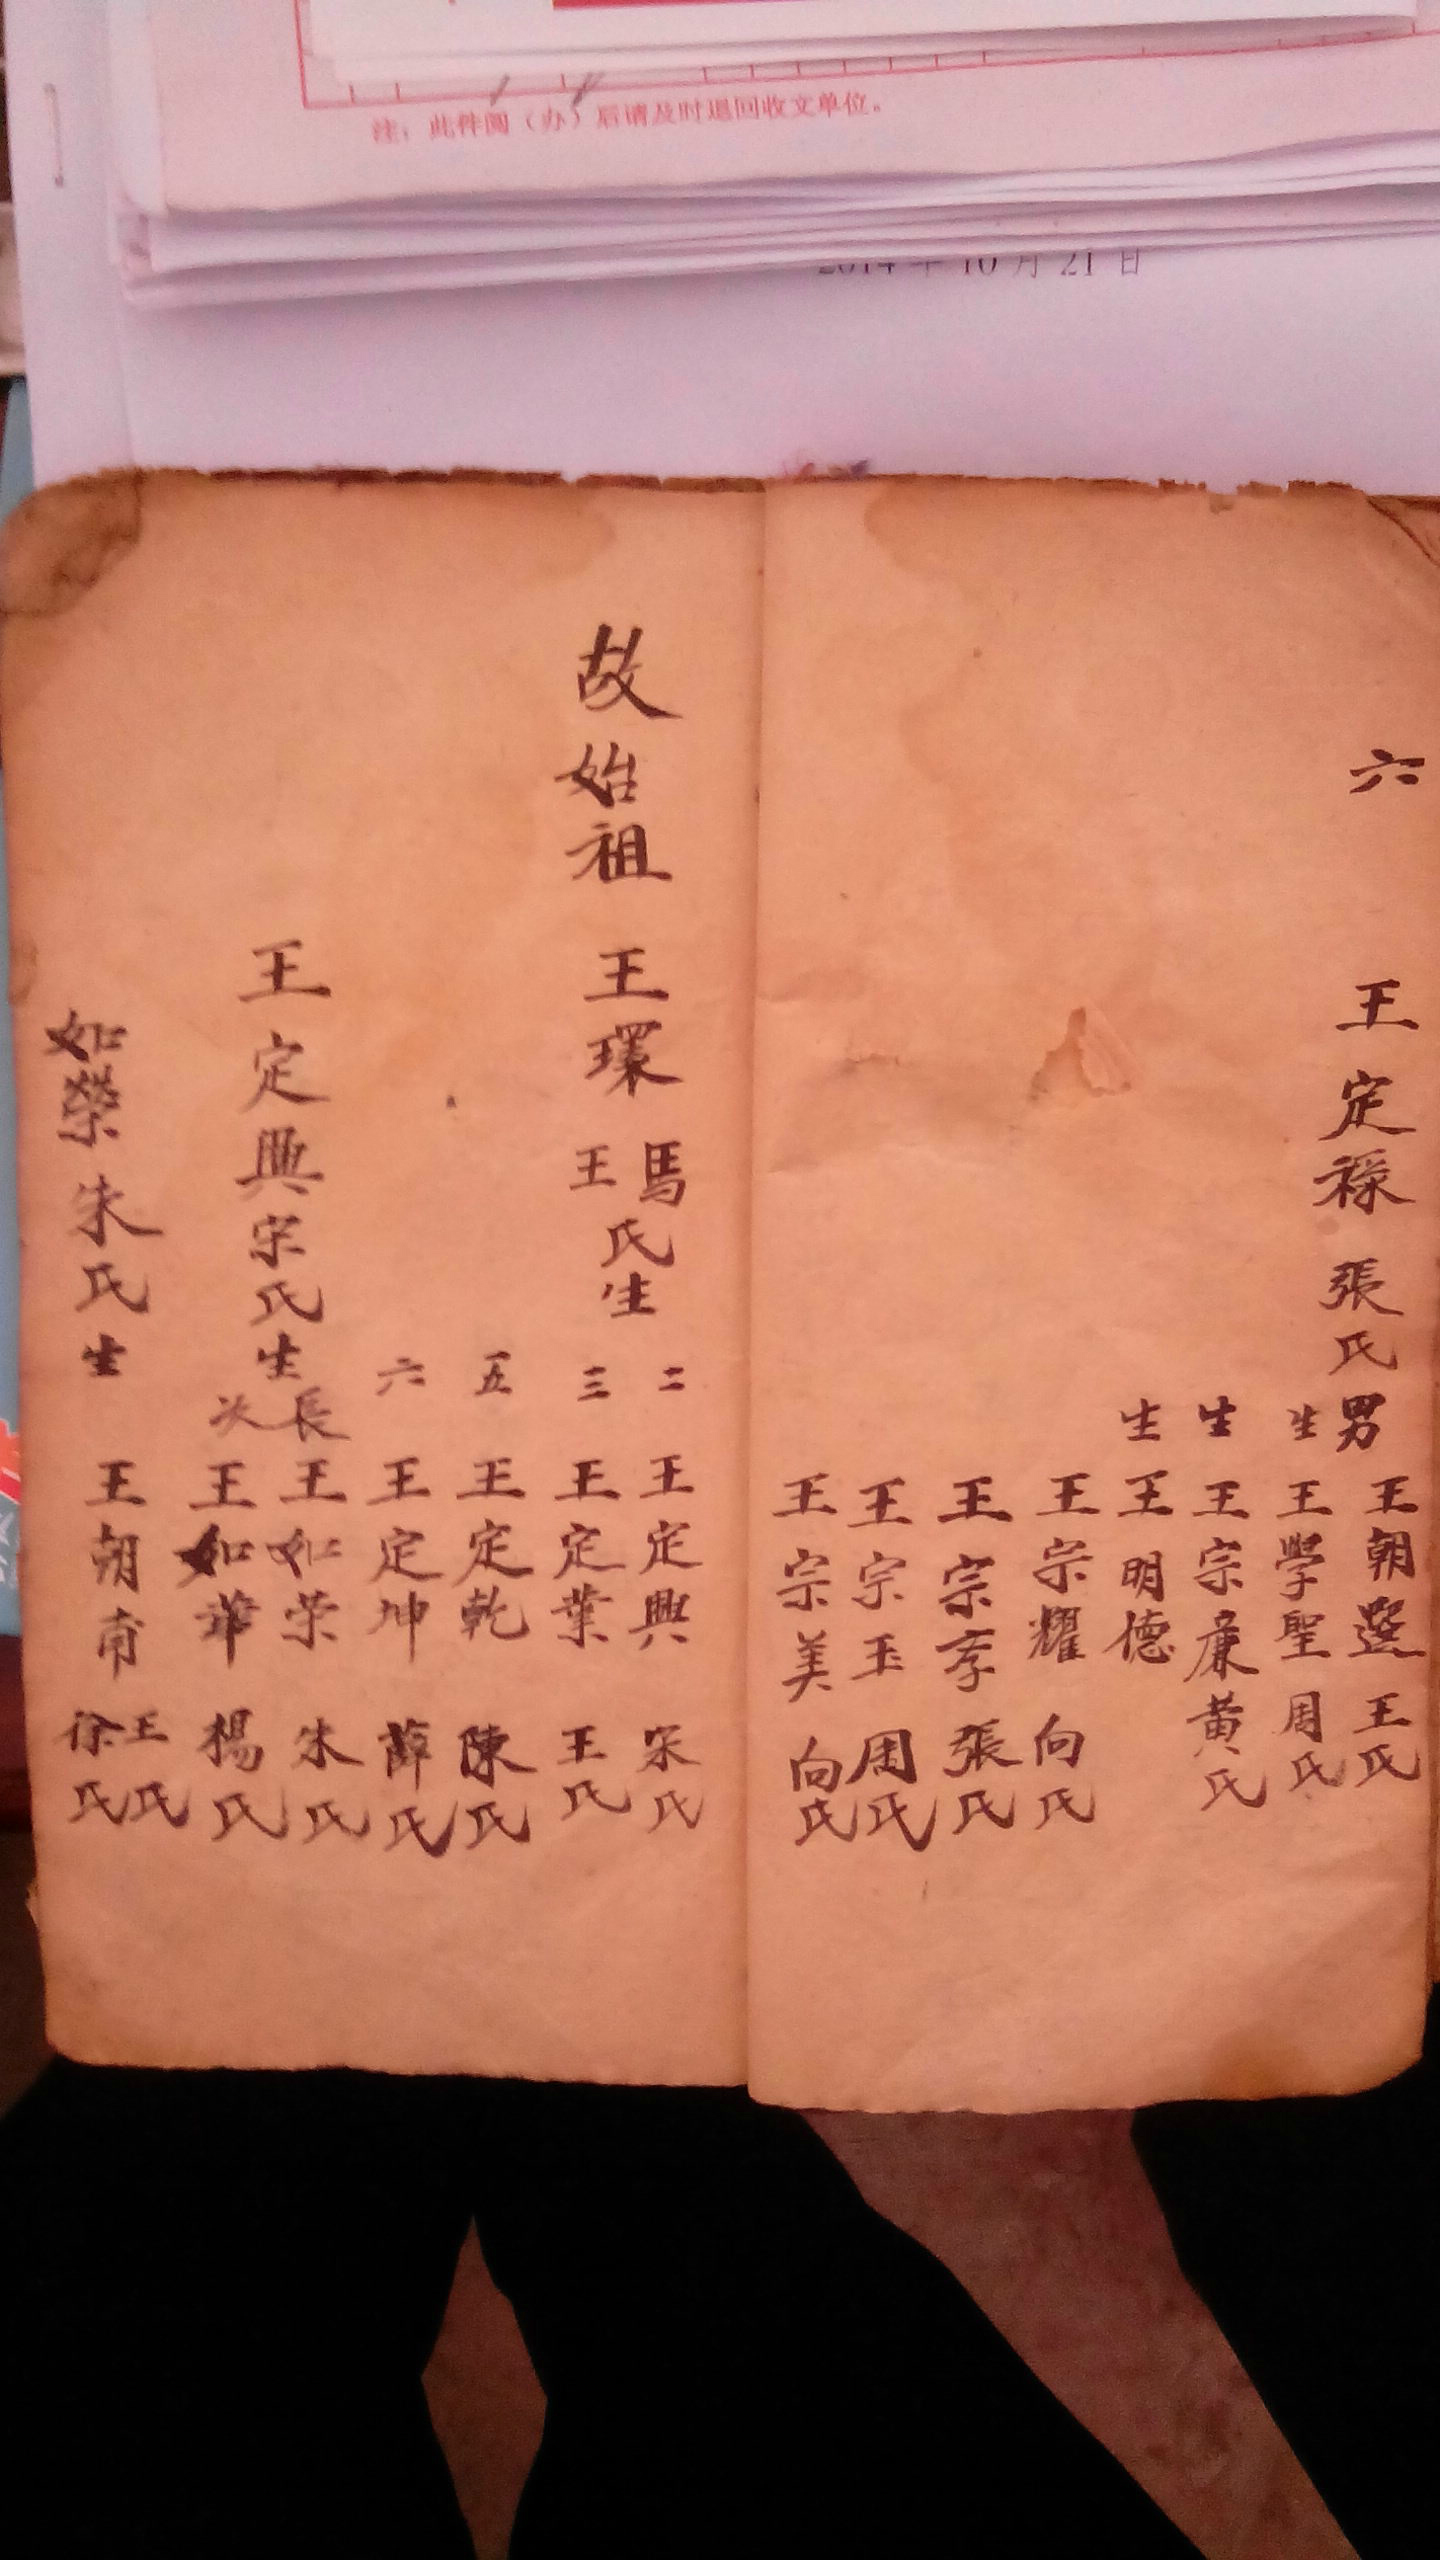 注：此件阅（办）后请及时退回收文单位。
2014 年 10 月 21 日
六 王定祿 張氏 男 王朝選 王氏
生 王學聖 周氏
生 王宗廉 黃氏
生 王明德
王宗耀 向氏
王宗孝 張氏
王宗玉 周氏
王宗美 向氏
故始祖 王環 馬王氏生
二 王定興 宋氏
三 王定業 王氏
五 王定乾 陳氏
六 王定坤 薛氏
王定興宋氏生
長 王如荣 朱氏
次 王如華 楊氏
如榮朱氏生 王朝 王氏 徐氏